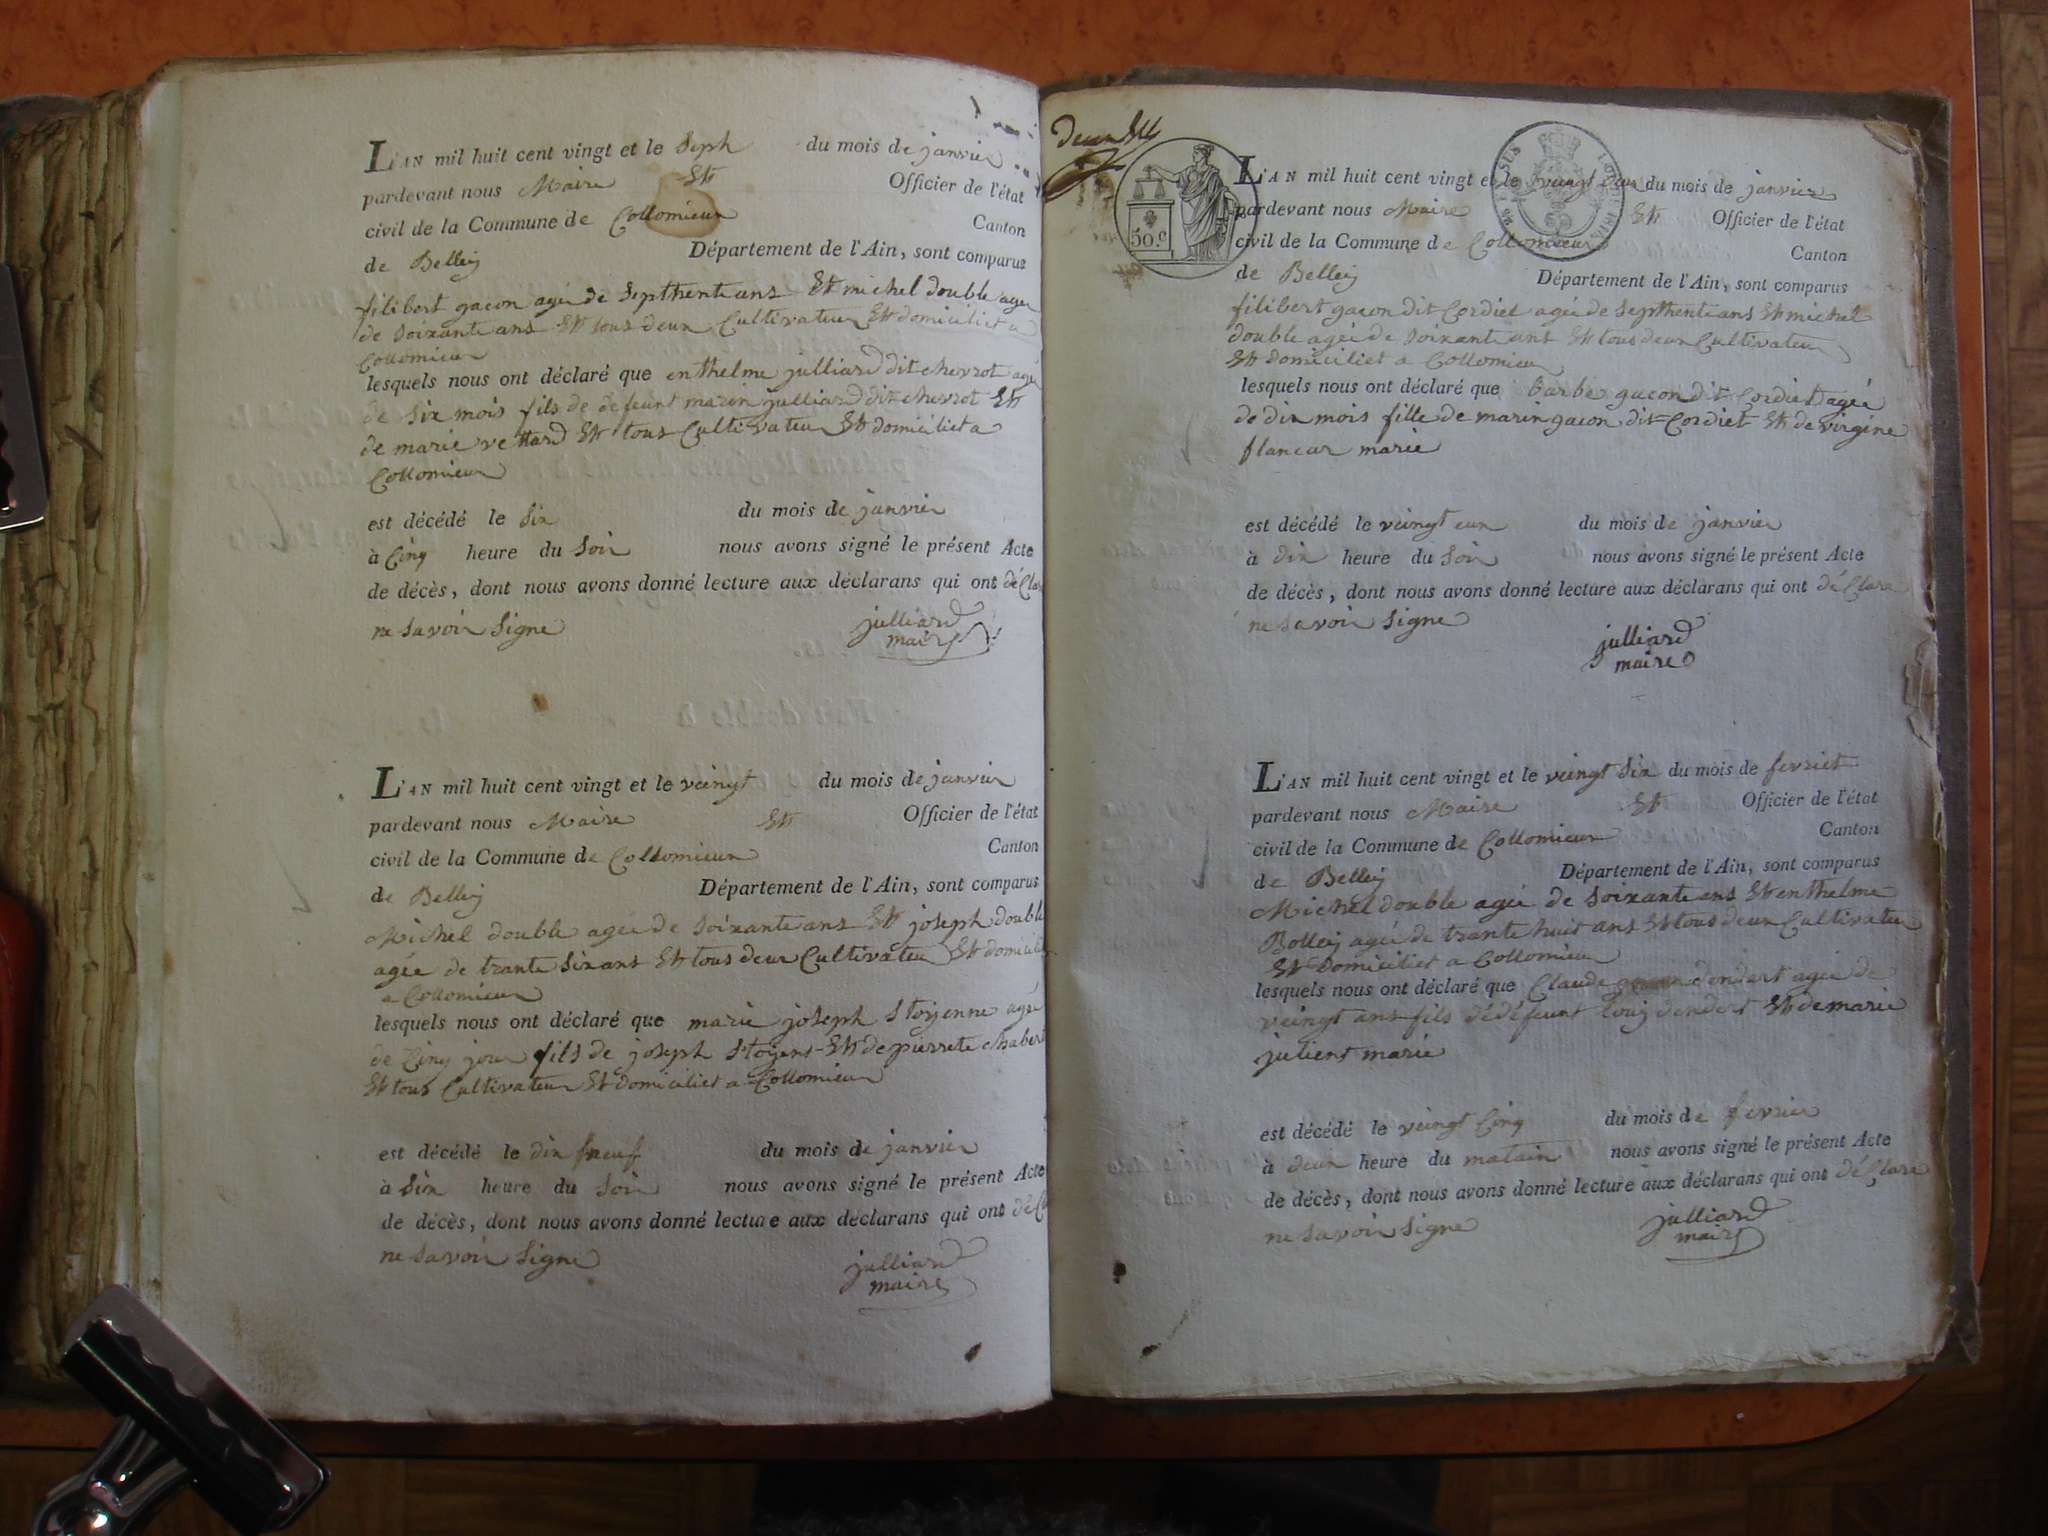 L'AN mil huit cent vingt et le Seph du mois de janvier
pardevant nous Maire Et Officier de l'état
civil de la Commune de Collomieux Canton
de Belley Département de l'Ain, sont comparus
filibert gacon agée de Septhente ans Et michel double agée
de Soixante ans Et tous deux Cultivateur Et domiciliet a
Collomieux
lesquels nous ont déclaré que enthelme julliard dit chevrot agée
de Six mois fils de defeunt marin julliard dit chevrot Et
de marie vettard Et tous Cultivateur Et domiciliet a
Collomieux
est décédé le Six du mois de janvier
à Cinq heure du Soir nous avons signé le présent Acte
de décès, dont nous avons donné lecture aux déclarans qui ont déClare
ne Savoir Signe julliard
maire
L'AN mil huit cent vingt et le veingt du mois de janvier
pardevant nous Maire Et Officier de l'état
civil de la Commune de Collomieux Canton
de Belley Département de l'Ain, sont comparus
Michel double agée de Soixante ans Et joseph double
agée de trante Six ans Et tous deux Cultivateur Et domiciliet
a Collomieux
lesquels nous ont déclaré que marie joseph Stoyenne agée
de Cinq jour fils de joseph Stoyens Et de pierrete chabert
Et tous Cultivateur Et domiciliet a Collomieux
est décédé le dix neuf du mois de janvier
à Six heure du Soir nous avons signé le présent Acte
de décès, dont nous avons donné lecture aux déclarans qui ont
ne Savoir Signe julliard
maire
50.c
L'AN mil huit cent vingt et le veingt deux du mois de janvier
pardevant nous Maire Et Officier de l'état
civil de la Commune de Collomieux Canton
de Belley Département de l'Ain, sont comparus
filibert gacon dit Cordiet agée de Septhente ans Et michel
double agée de Soixante ans Et tous deux Cultivateur
Et domiciliet a Collomieux
lesquels nous ont déclaré que barbe gacon dit Cordiet agée
de dix mois fille de marin gacon dit Cordiet Et de virgine
flancar marie
est décédé le veingt eun du mois de janvier
à dix heure du Soir nous avons signé le présent Acte
de décès, dont nous avons donné lecture aux déclarans qui ont déClare
ne Savoir Signe
julliard
maire
L'AN mil huit cent vingt et le veingt Six du mois de fevriet
pardevant nous Maire Et Officier de l'état
civil de la Commune de Collomieux Canton
de Belley Département de l'Ain, sont comparus
Michel double agée de Soixante ans Et enthelme
Bolley agée de trante huit ans Et tous deux Cultivateur
Et Domiciliet a Collomieux
lesquels nous ont déclaré que Claude dendert agée de
veingt ans fils dédéfeunt Louij dendert Et de marie
julient marie
est décédé le veingt Cinq du mois de fevrier
à deux heure du matain nous avons signé le présent Acte
de décès, dont nous avons donné lecture aux déclarans qui ont déClare
ne Savoir Signe julliard
maire